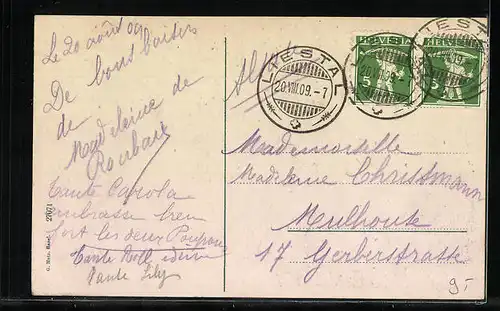 Le 20 août 09
De bons baisers
de
Madeleine de
Roubaix
Tante Carola
embrasse bien
fort les deux Poupons
Tante idem
Tante Lily
G. Metz, Basel.
LIESTAL
20.VIII.09.-7
HELVETIA
5
HELVETIA
5
LIESTAL
Mademoiselle
Madeleine Christmann
Mulhouse
17 Gerberstrasse
9.-